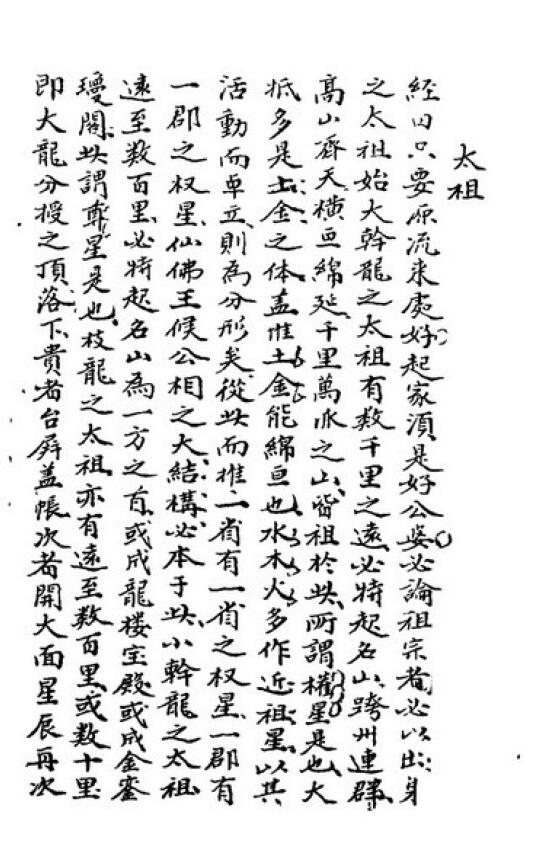 太祖
經曰只要原流来處好起家須是好公婆必論祖宗者必以出身
之太祖始大幹龍之太祖有数千里之遠必特起名山跨州連群
高山齊天橫亘綿延千里萬派之山皆祖於此所謂權星是也大
抵多是土金之体盖惟土金能綿亘也水木火多作近祖星以其
活動而卓立則為分形矣從此而推一省有一省之权星一郡有
一郡之权星仙佛王候公相之大結構必本于此小幹龍之太祖
遠至数百里必特起名山為一方之百或成龍楼宝殿或成金銮
瓊閣此謂尊星是也枝龍之太祖亦有遠至数百里或数十里
即大龍分授之頂落下貴者台屏盖帳次者開大面星辰再次